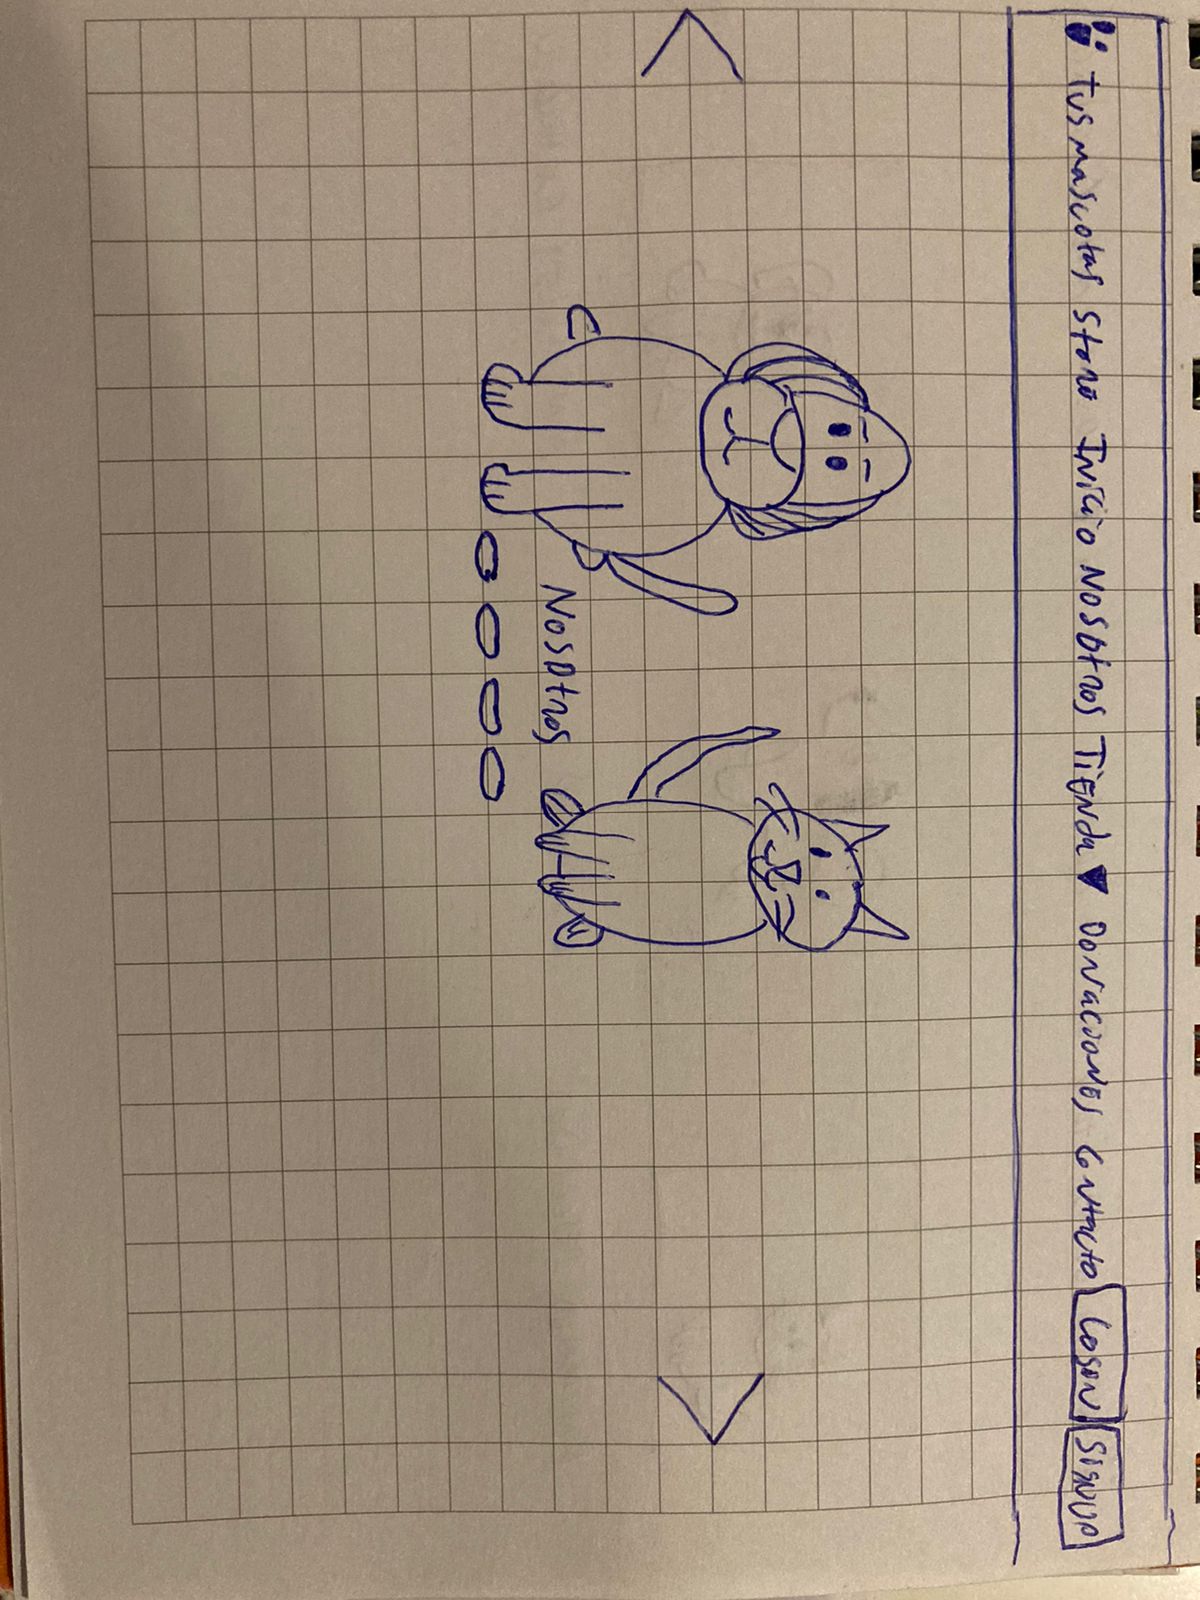 Tus mascotas Store Inicio Nosotros Tienda▼ Donaciones Contacto Login Signup
Nosotros